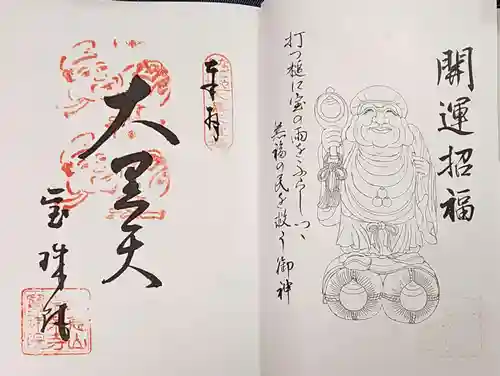 開運招福
打つ槌に宝の雨をふらしつゝ
慈福の民を救う御神
奉拝
大黒天
宝珠院